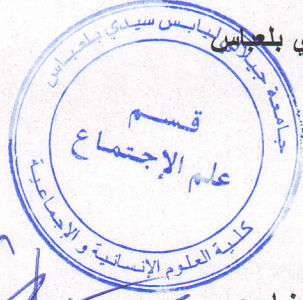 بلعباس
جامعة جيلالي ليابس سيدي بلعباس
قسم
علم الإجتماع
كلية العلوم الإنسانية و الإجتماعية